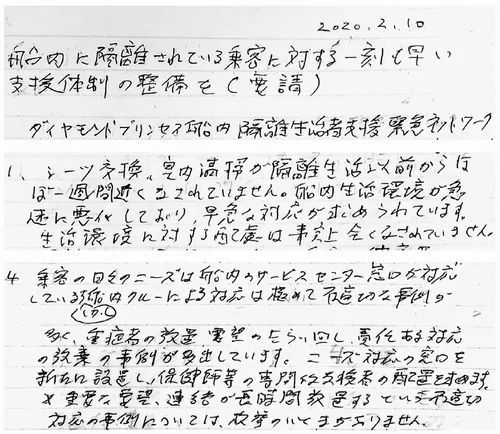 2020.2.10
船内に隔離されている乗客に対する一刻も早い
支援体制の整備を(要請)
ダイヤモンドプリンセス船内隔離生活者支援緊急ネットワーク
1、シーツ交換、室内清掃が隔離生活以前からほ
ぼ一週間近くなされていません。船内生活環境が急
速に悪化しており、早急な対応が求められています。
生活環境に対する配慮は事実上全くなされていません。
4 乗客の日々のニーズは船内のサービスセンター窓口が対応
している船内クルーによる対応は極めて不適切な事例が
多く、重症者の放置、要望のたらい回し、責任ある対応
の放棄の事例が多出しています。ニーズ対応の窓口を
新たに設置し、保健師等の専門的支援者の配置を求めます。
*重要な要望、連絡が長時間放置するという不適切
対応の事例については、枚挙のいとまがありません。